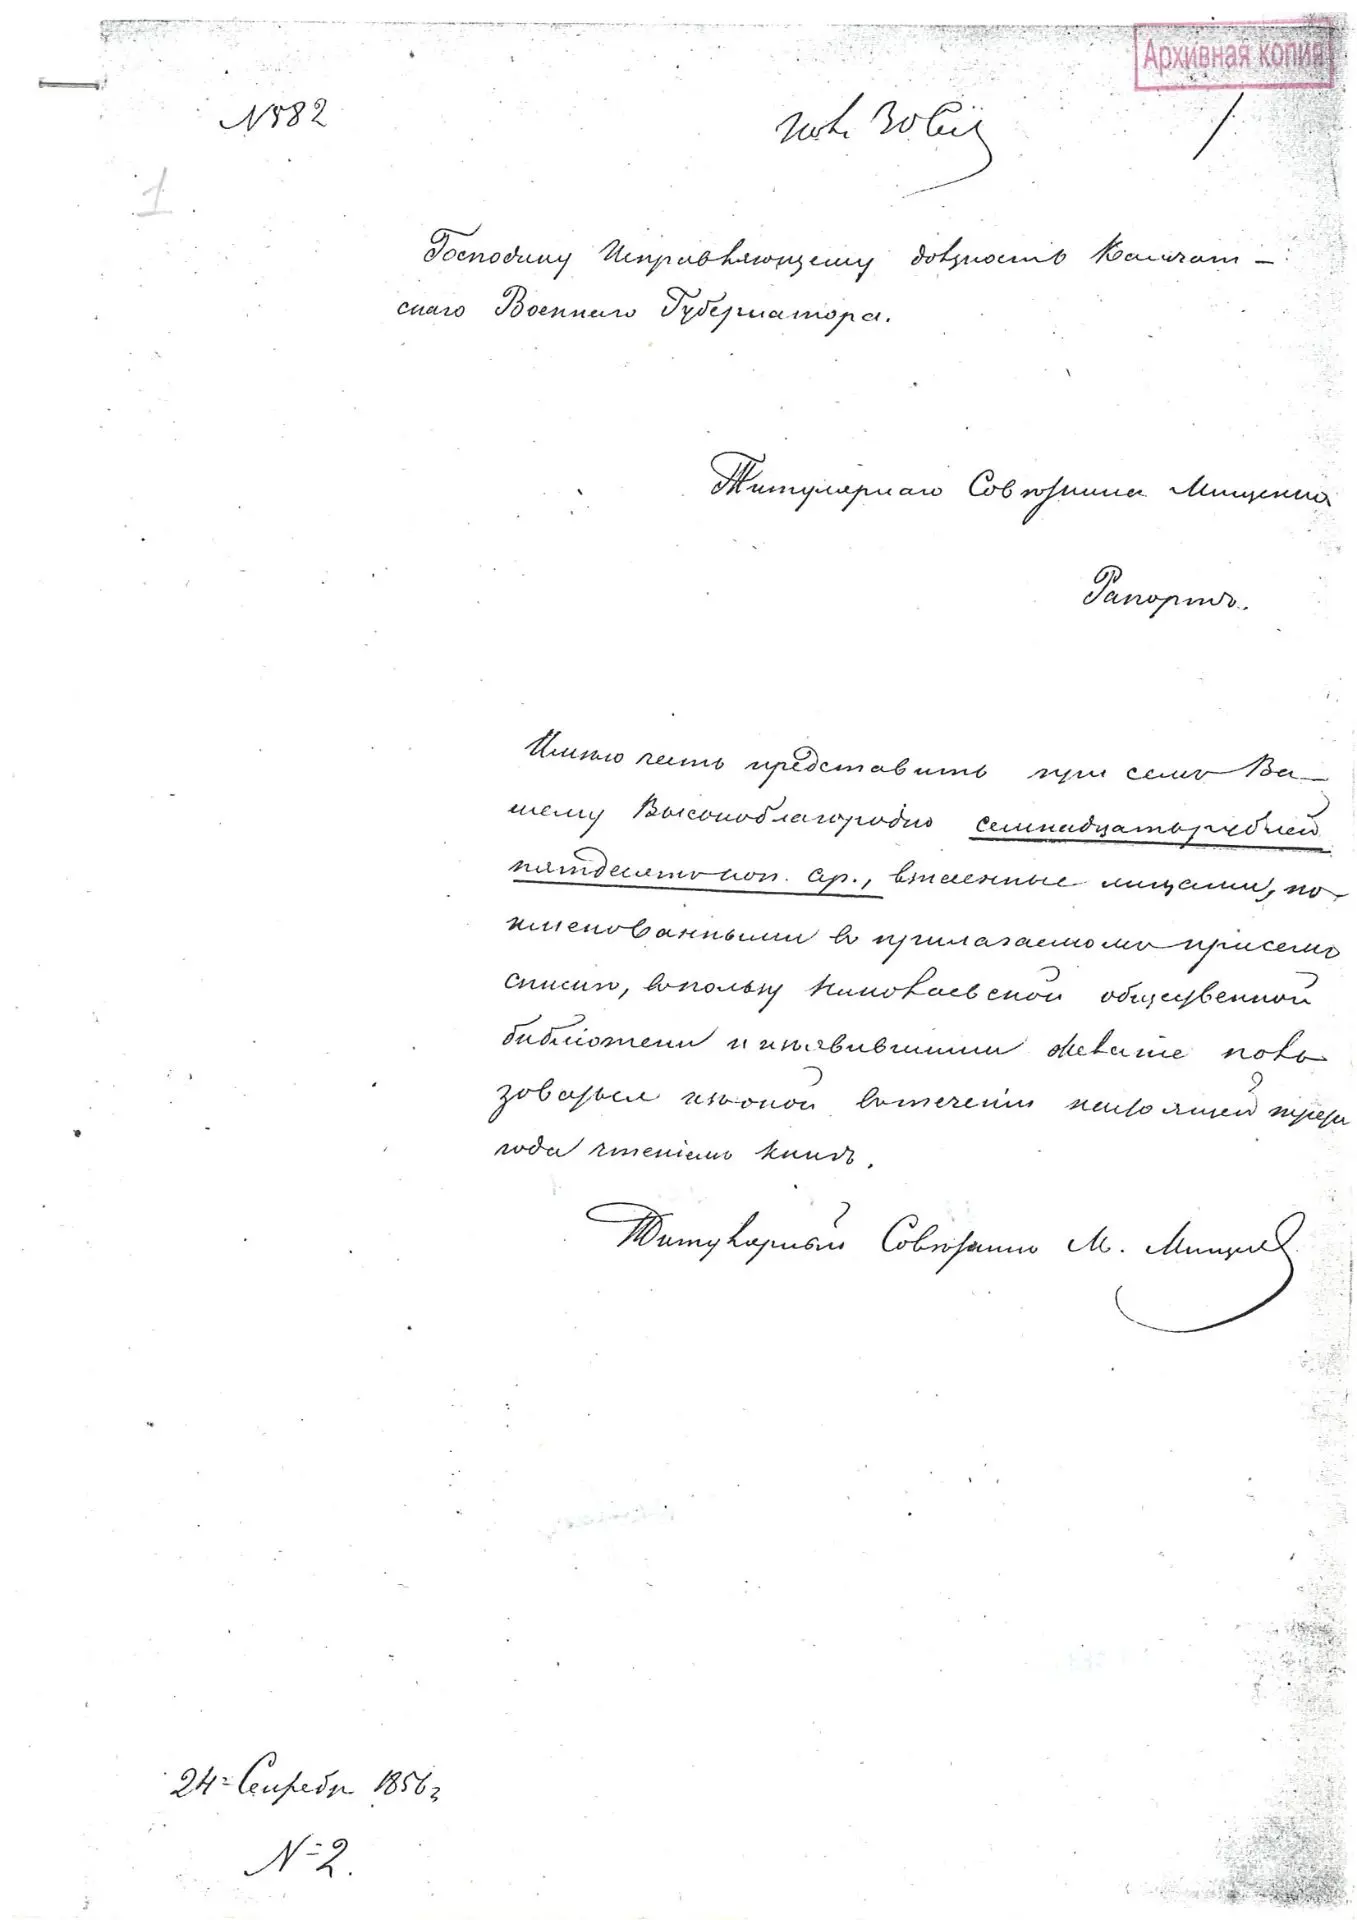 Архивная копия
№582
1
Господину Исправляющему должность Камчат-
скаго Военнаго Губернатора.
Титулярнаго Советника Мищенка
Рапортъ.
Имѣю честь представить при семъ Ва-
шему Высокоблагородію семнадцать рублей
пятдесятъ коп. ср., внесенные лицами, по-
имѣнованными въ прилагаемомъ присемъ
спискѣ, вопользу Николаевской общественной
библіотеки и изъявившими желаніе поль-
зоваться изъоной втеченіи настоящей трети
года чтеніемъ книгъ.
Титулярный Совѣтникъ М.
24 Сентября 1856 г
№ 2.